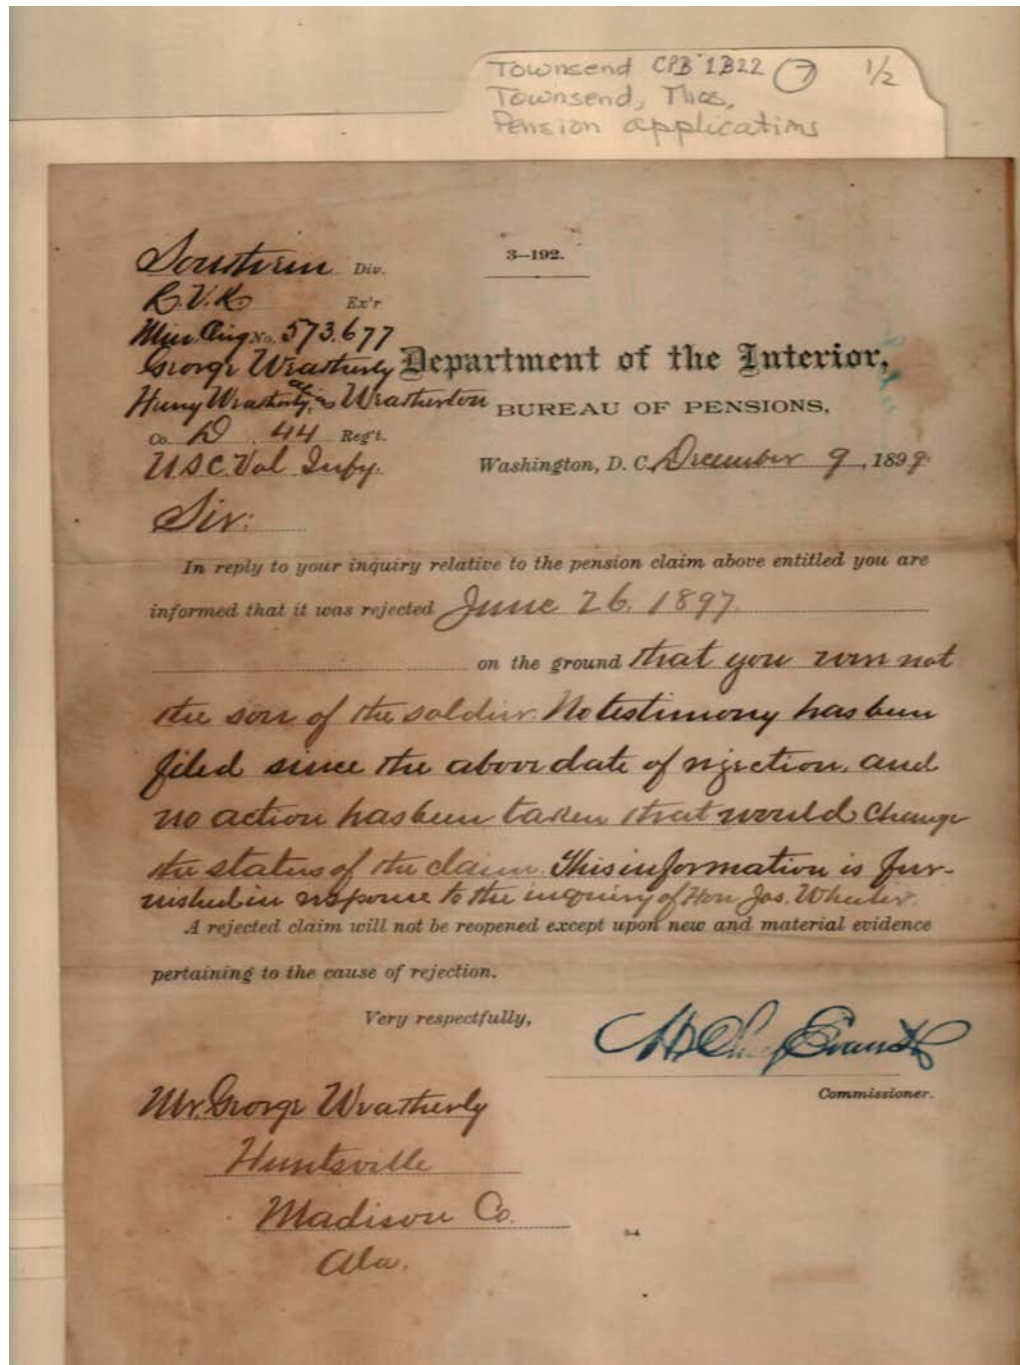 Townsend CPB 1B22 7 1/2
Townsend, Thos,
Pension applications
3—192.
Southern Div.
R.V.K Ex'r
Min. Orig No. 573.677
George Weatherly
Department of the Interior,
Henry Weatherly, or as Weatherton
BUREAU OF PENSIONS,
Co. D 44 Reg't.
U.S.C. Vol Infy.
Washington, D. C. December 9, 1899.
Sir:
In reply to your inquiry relative to the pension claim above entitled you are
informed that it was rejected June 26, 1897.
on the ground that you were not
the son of the soldier. No testimony has been
filed since the above date of rejection, and
no action has been taken that would change
the status of the claim. This information is fur-
nished in response to the inquiry of Hon Jos. Wheeler.
A rejected claim will not be reopened except upon new and material evidence
pertaining to the cause of rejection.
Very respectfully,
H Clay Evans
Commissioner.
Mr. George Weatherly
Huntsville
Madison Co.
Ala.